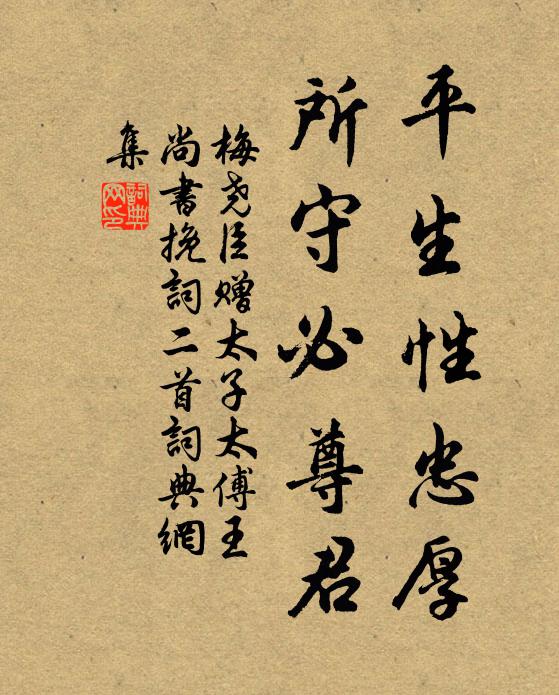 平生性忠厚
所守必尊君
梅尧臣赠太子太傅王
尚書挽詞二首詞典網
集
詞典
网印